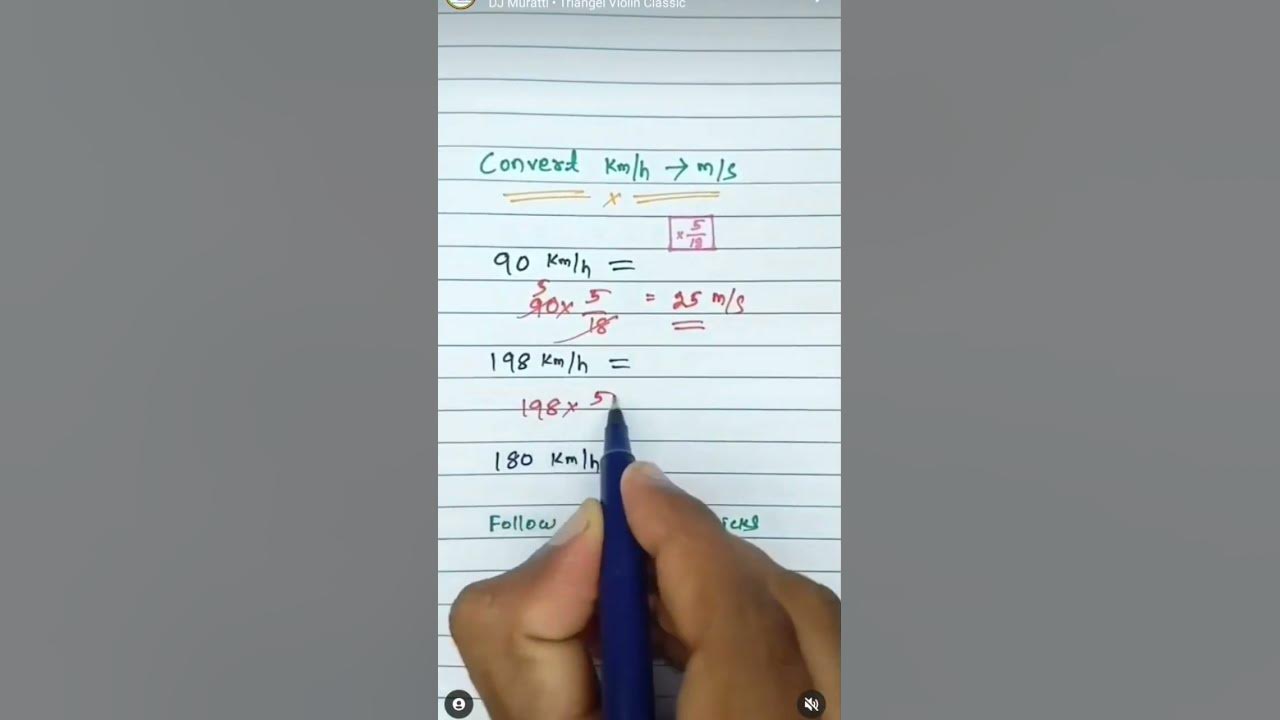 DJ Muratti • Triangel Violin Classic
Convert km/h → m/s
x
× 5/18
90 km/h =
5
90 × 5/18 = 25 m/s
198 km/h =
198 × 5
180 km/h
Follow